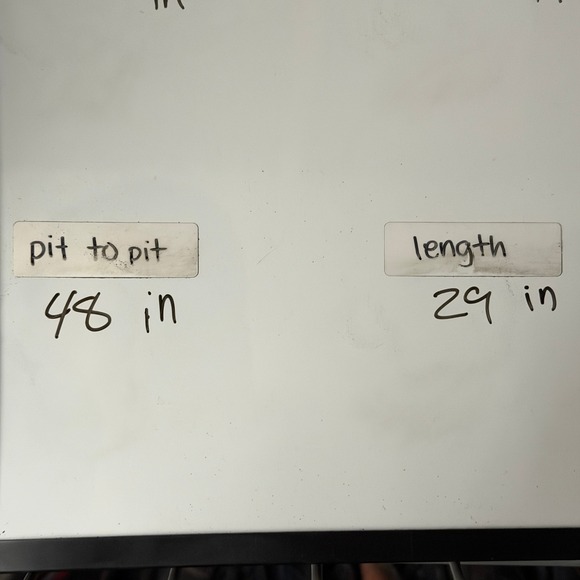 in
pit to pit
length
48 in
29 in